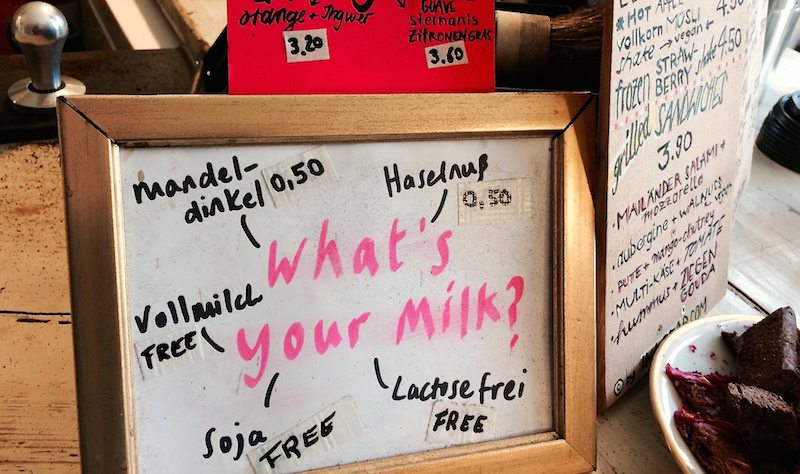 orange + Ingwer
3.20
GUAVE
sternanis
ZITRONENGRAS
3.60
Mandel-
dinkel 0,50
Haselnuß
0,50
What's
your Milk?
Vollmilch
FREE
Soja
FREE
Lactosefrei
FREE
HOT APPLE
vollkorn MÜSLI
shake → vegan + 4.50
frozen STRAW-
BERRY shake 4.50
grilled SANDWICHES
3.90
• MAILÄNDER SALAMI +
mozzarella
• aubergine + WALNUSS
• PUTE + mango-chutney
• MULTI-KÄSE + TOMATE
• hummus + ZIEGEN
GOUDA